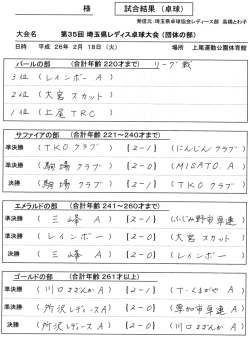 様 試合結果（卓球）
発信元：埼玉県卓球協会レディース部 高橋とわ子
大会名 第35回 埼玉県レディス卓球大会（団体の部）
日時 平成 26年 2月 18日（火） 場所 上尾運動公園体育館
パールの部 （合計年齢 220才まで） リーグ戦
3位 （ レインボー A ）
2位 （ 大宮スカット ）
1位 （ 上尾 TRC ）
サファイアの部 （合計年齢 221～240才まで）
準決勝 （ TKO クラブ ） 【2-1】 （にんじんクラブ）
準決勝 （ 駒場クラブ ） 【2-0】 （MISATO. A）
決勝 （ 駒場クラブ ） 【2-1】 （TKO クラブ）
エメラルドの部 （合計年齢 241～260才まで）
準決勝 （ 三峰 A ） 【2-1】 （ふじみ野市卓連）
準決勝 （ レインボー ） 【2-0】 （大宮スカット）
決勝 （ 三峰 A ） 【2-0】 （レインボー）
ゴールドの部 （合計年齢 261才以上）
準決勝 （川口さざんか A） 【2-1】 （T・くるがや A）
準決勝 （所沢レディース A） 【2-0】 （草加市卓連）
決勝 （所沢レディース A） 【2-0】 （川口さざんか A）